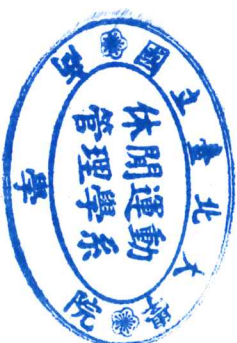 國立臺北大學
休閒運動
管理學系
商學院